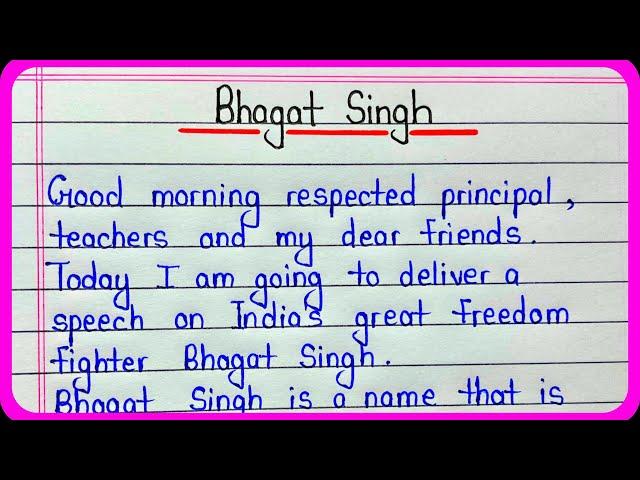 Bhagat Singh
Good morning respected principal,
teachers and my dear friends.
Today I am going to deliver a
speech on India's great freedom
fighter Bhagat Singh.
Bhagat Singh is a name that is